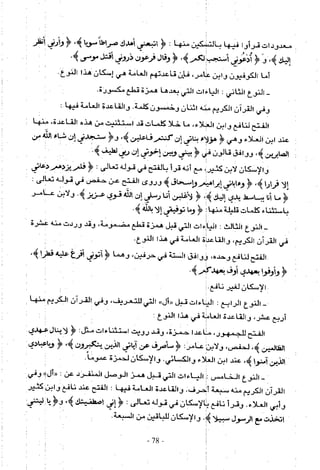 معدودات قرأوا فيها بالتسكين منها : ﴿ اتبعني أهدك صراطا سويا ﴾، ﴿ وأرني أنظر
إليك ﴾، و ﴿ ادعوني أستجب لكم ﴾، ﴿ وقال فرعون ذروني أقتل موسى ﴾.
أما الكوفيون وابن عامر، فإن قاعدتهم العامة هي إسكان هذا النوع.
- النوع الثاني : الياءات التي بعدها همزة قطع مكسورة.
وفي القرآن الكريم منه اثنان وخمسون كلمة. والقاعدة العامة فيها :
الفتح لنافع وابن العلاء، ما خلا كلمات قد استثنيت من هذه القاعدة، منها
عند ابن العلاء وهي ﴿ هؤلاء بناتي إن كنتم فاعلين ﴾، و ﴿ ستجدني إن شاء الله من
الصابرين ﴾، ووافق قالون في ﴿ بيني وبين إخوتي إن ربي لطيف ﴾.
والإسكان لابن كثير، مع أنه قرأ بالفتح في قوله تعالى : ﴿ فلم يزدهم دعائي
إلا فرارا ﴾، ﴿ وءابائي إبراهيم وإسحاق ﴾ وروى الفتح عن حفص في قوله تعالى :
﴿ ما أنا بباسط يدي إليك ﴾، ﴿ لأغلبن أنا ورسلي إن الله قوي عزيز ﴾، ولابن عامر
باستثناء كلمات قليلة منها: ﴿ وما توفيقي إلا بالله ﴾.
- النوع الثالث : الياءات التي قبل همزة قطع مضمومة، وقد وردت منه عشرة
في القرآن الكريم، والقاعدة العامة في هذا النوع.
الفتح لنافع وحده، ووافق الستة في حرفين، وهما ﴿ آتوني أفرغ عليه قطرا ﴾،
﴿ وأوفوا بعهدي أوف بعهدكم ﴾.
الإسكان لغير نافع.
- النوع الرابع : الياءات قبل «أل» التي للتعريف، وفي القرآن الكريم منها
أربع عشر، والقاعدة العامة في هذا النوع :
الفتح للجمهور، ما عدا حمزة، وقد رويت استثناءات مثل : ﴿ لا ينال عهدي
الظالمين ﴾، لحفص، ولابن عامر: ﴿ سأصرف عن آياتي الذين يتكبرون ﴾، ﴿ وياعبادي
الذين آمنوا ﴾، عند ابن العلاء والكسائي. والإسكان لحمزة عموما.
- النوع الخامس : الياءات التي قبل همز الوصل المنفرد عن : «أل» وفي
القرآن الكريم منه سبعة أحرف. والقاعدة العامة فيها : الفتح عند نافع وابن كثير
وأبي العلاء. وقرأ نافع بالإسكان في قوله تعالى : ﴿ إني اصطفيتك ﴾، و ﴿ يا ليتني
اتخذت مع الرسول سبيلا ﴾، والإسكان للباقين من السبعة.
- 78 -